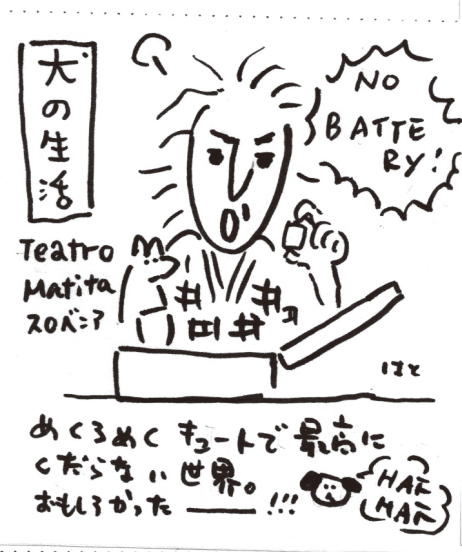 犬の生活
NO
BATTE
RY!
Teatro
Matita
スロベニア
はと
めくるめくキュートで最高に
くだらない世界。
おもしろかった――!!!
HAR
HAR